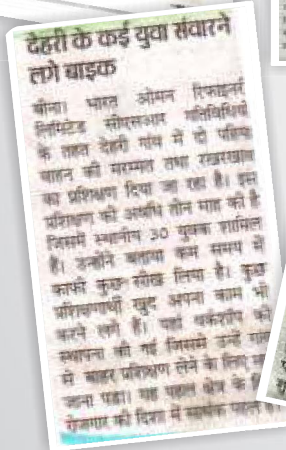 देहरी के कई युवा संवारने
लगे बाइक
बीना। भारत ओमान रिफाइनरी
लिमिटेड सीएसआर गतिविधियों
के तहत देहरी गांव में दो पहिया
वाहन की मरम्मत तथा रखरखाव
का प्रशिक्षण दिया जा रहा है। इस
प्रशिक्षण की अवधि तीन माह की है
जिसमें स्थानीय 30 युवक शामिल
हैं। उन्होंने बताया कम समय में
काफी कुछ सीख लिया है। कुछ
प्रशिक्षणार्थी खुद अपना काम भी
करने लगे हैं। यहां वर्कशॉप की
स्थापना की गई जिससे उन्हें गांव
से बाहर प्रशिक्षण लेने के लिए
जाना पड़ा। यह पहल क्षेत्र के
रोजगार की दिशा में सार्थक पहल है।